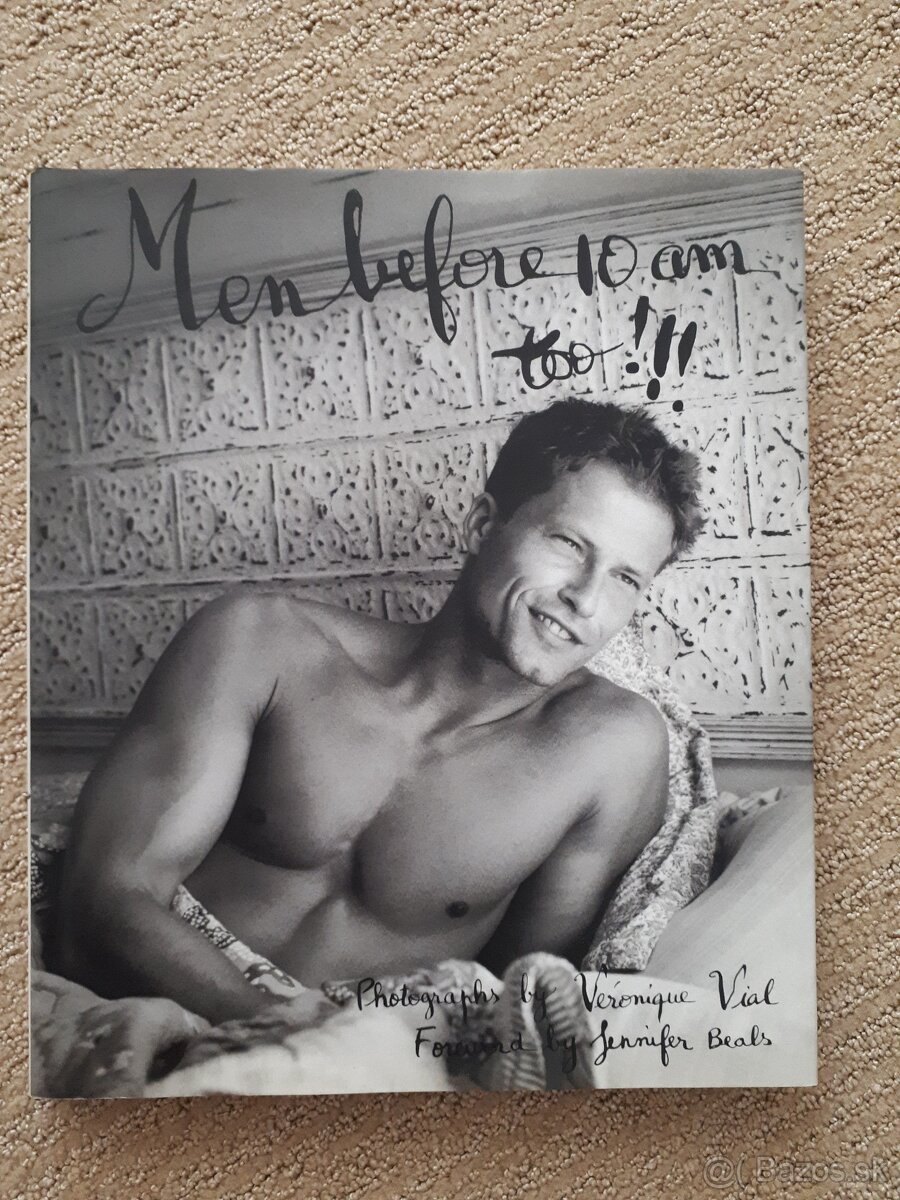 Men before 10 am
too!!!
Photographs by Véronique Vial
Foreword by Jennifer Beals
@( Bazos.sk